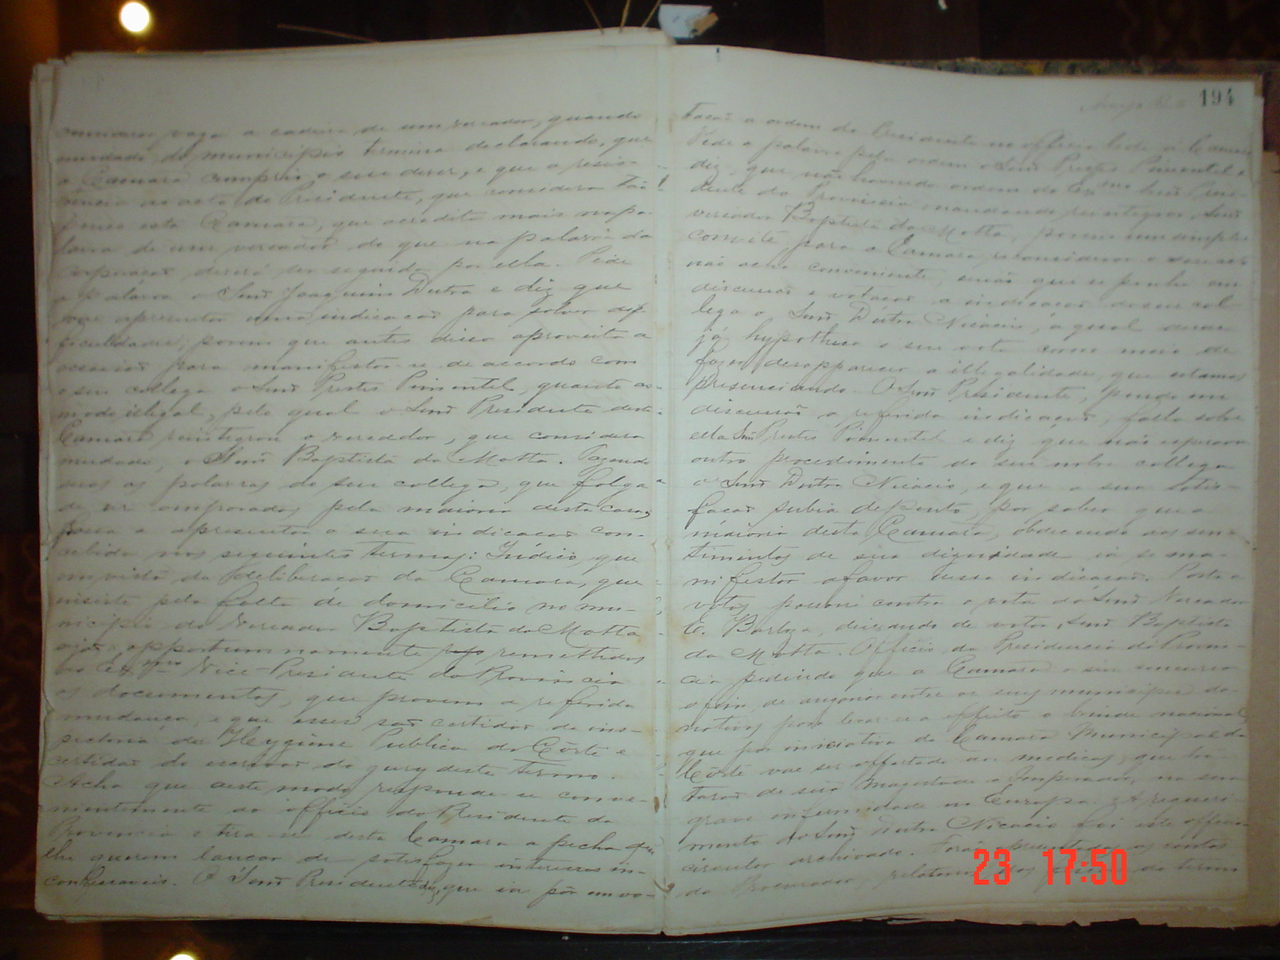 considerar vaga a cadeira de um vereador, quando
mudado do municipio termina declarando, que
a Camara cumprio o seu dever, e que a
ao acto do Presidente, que considera
esta Camara, que acredita mais na pa-
lavra de um vereador do que na palavra da
corporação deverá ser seguida por ella. Pede
a palavra o Senr Joaquim Dutra e diz que
vae apresentar uma indicação para solver dif-
ficuldades; porem que antes disso aproveita a
occasião para manifestar-se de accordo com
o seu collega o Senr Prestes Pimentel, quanto ao
modo illegal, pelo qual o Senr Presidente desta
Camara reintegrou o vereador, que considera
mudado, o Senr Baptista da Motta. Fazendo
suas as palavras do seu collega, que folga
de ver comprovadas pela maioria desta casa,
passa a apresentar a sua indicação con-
cebida nos seguintes termos: Indico que
em vista da deliberação da Camara, que
insiste pela falta de domicilio no mu-
nicipio do vereador Baptista da Motta
opportunamente remettidos
ao Exmo Vice-Presidente da Provincia
os documentos, que provam a referida
mudança, e que esses são certidão da ins-
pectoria de Hygiene Publica da Côrte e
certidão do escrivão do jury deste termo.
Acha que deste modo responde-se conve-
nientemente ao officio do Presidente da
Provincia e tira-se desta Camara a pecha que
lhe querem lançar de satisfazer interesses in-
confessaveis. O Senr Presidente diz, que ia pôr em vo-
194
tação a ordem do Presidente no officio lido à Camara
Pede a palavra pela ordem o Senr Prestes Pimentel e
diz, que não havendo ordem do Exmo Senr Presi-
dente da Provincia mandando reintegrar, o Senr
vereador Baptista da Motta, porem um simples
convite para a Camara reconsiderar o seu acto
não acha conveniente, senão que se ponha em
discussão e votação a indicação do seu col-
lega o Senr Dutra Nicacio, á qual desde
já hypotheca o seu voto como meio de
fazer desapparecer a illegalidade, que estamos
presenciando. O Senr Presidente, pondo em
discussão a referida indicação, falla sobre
ella Senr Prestes Pimentel e diz que não esperava
outro procedimento do seu nobre collega
o Senr Dutra Nicacio, e que a sua satis-
fação subia de ponto por saber que a
maioria desta Camara, obedecendo aos sen-
timentos de sua dignidade ia se ma-
nifestar a favor dessa indicação. Posta a
votos passou contra o voto do Senr Vereador
E. Barbosa, deixando de votar, Senr Baptista
da Motta. Officio da Presidencia da Provin-
cia pedindo que a Camara
a fim de angariar entre os seus municipes do-
nativos para levar-se a effeito o brinde nacional
que por iniciativa da Camara Municipal da
Côrte vae ser offertado ao medicos, que tra-
tarão de sua Magestade o Imperador na sua
grave enfermidade na Europa. A requeri-
mento do Senr Dutra Nicacio foi este officio
circular archivado. Forão presentes as contas
do Procurador, relatorio dos do termo
23 17:50